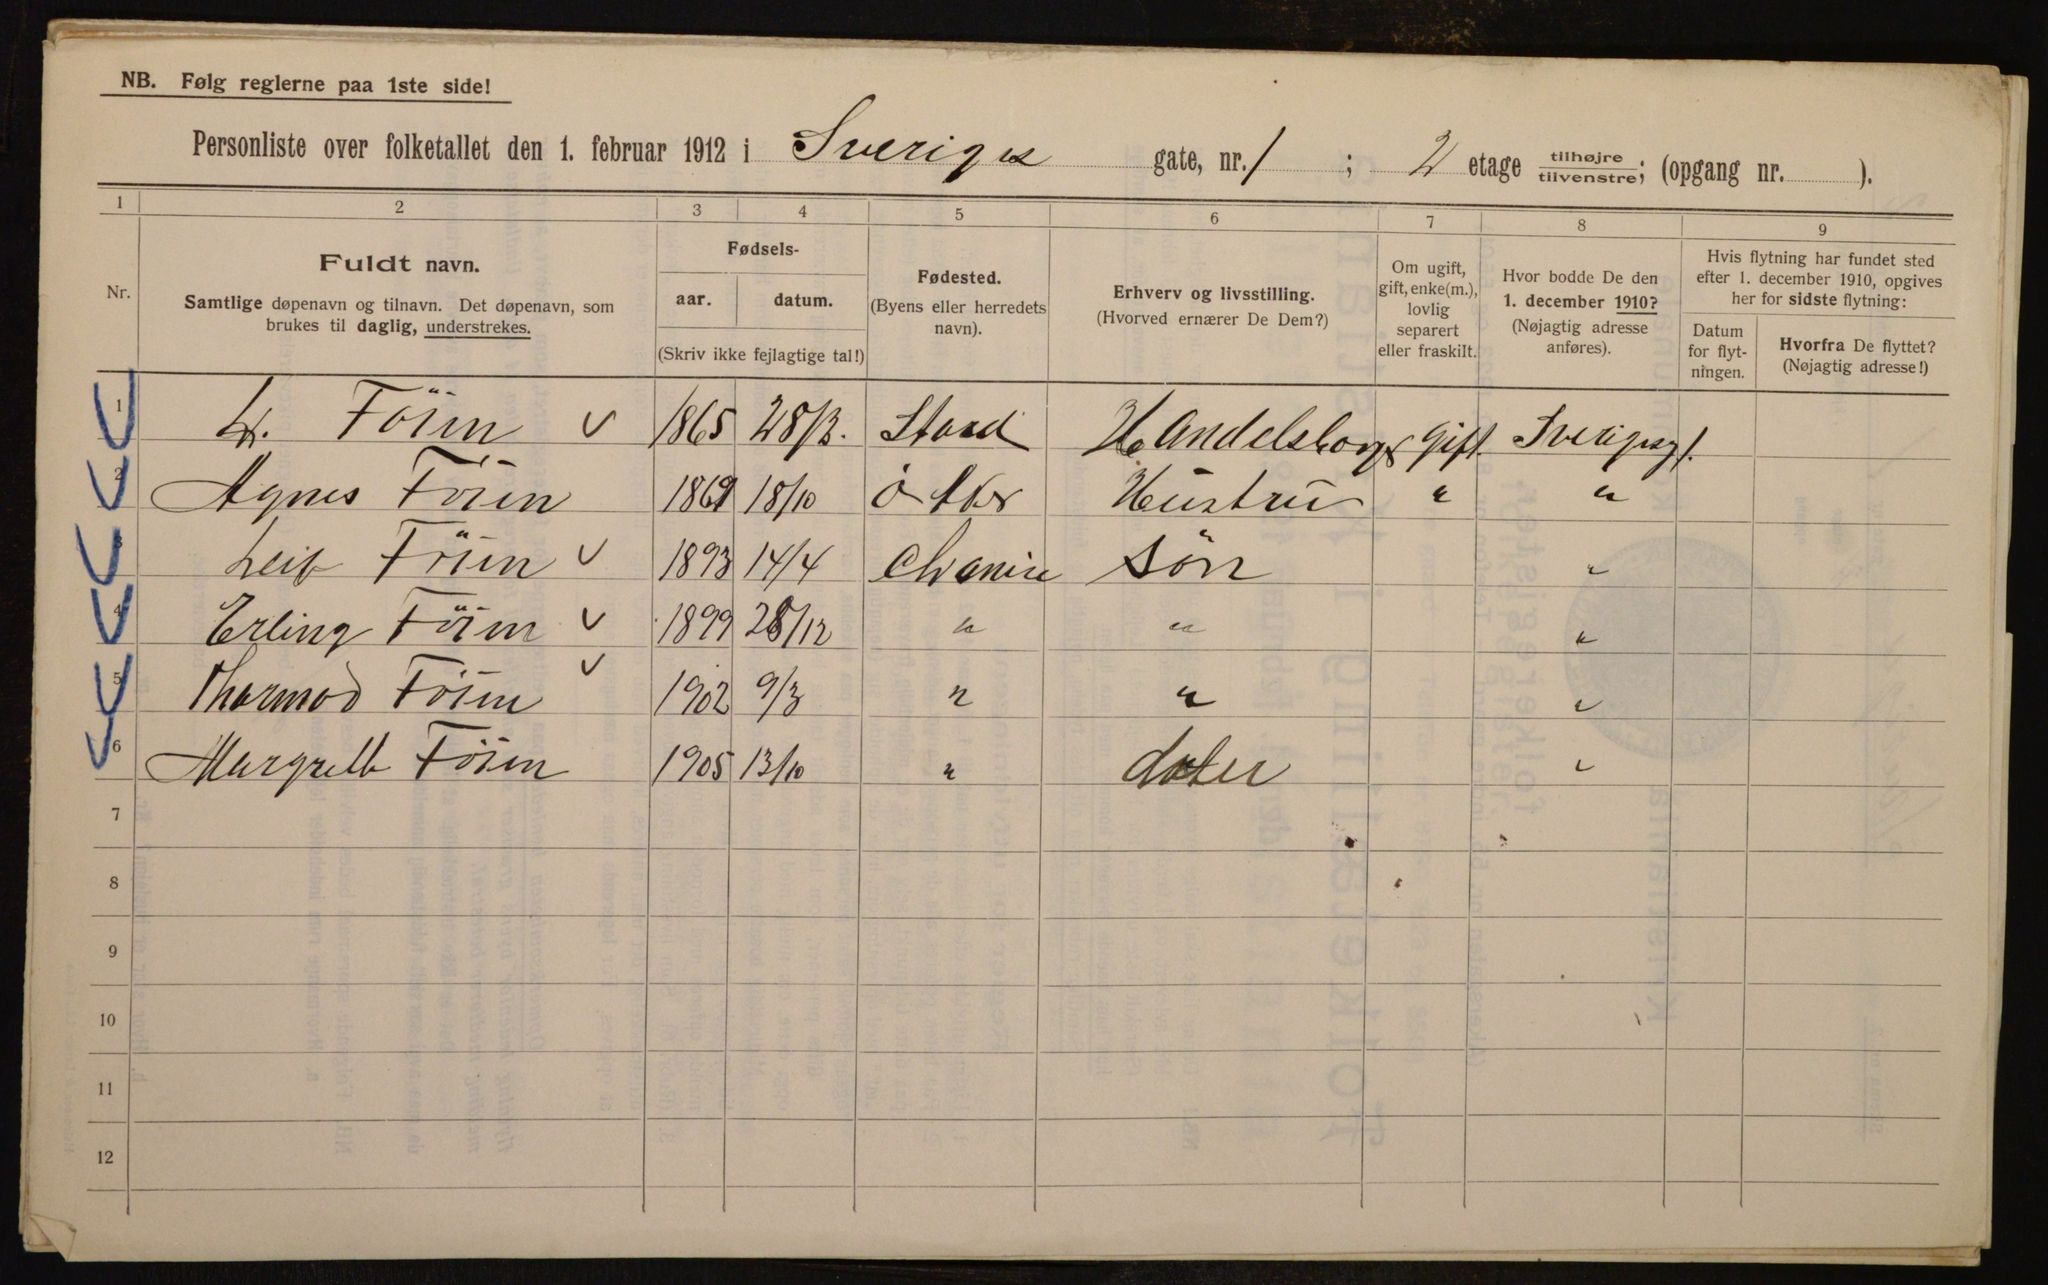 NB. Følg reglerne paa 1ste side!
Personliste over folketallet den 1. februar 1912 i Sveriges gate, nr. 1 ; 2 etage tilhøjre/tilvenstre; (opgang nr. ).
1 2 3 4 5 6 7 8 9
Nr.
Fuldt navn.
Samtlige døpenavn og tilnavn. Det døpenavn, som
brukes til daglig, understrekes.
Fødsels-
aar. datum.
(Skriv ikke fejlagtige tal!)
Fødested.
(Byens eller herredets
navn).
Erhverv og livsstilling.
(Hvorved ernærer De Dem?)
Om ugift,
gift, enke(m.),
lovlig
separert
eller fraskilt.
Hvor bodde De den
1. december 1910?
(Nøjagtig adresse
anføres).
Hvis flytning har fundet sted
efter 1. december 1910, opgives
her for sidste flytning:
Datum
for flyt-
ningen.
Hvorfra De flyttet?
(Nøjagtig adresse!)
1 Föien 1865 28/3. Gift. Sverigesg 1.
2 Agnes Föien 1869 18/10 Ö Aker Hustru " "
3 Leif Föien 1893 14/4 Chania Sön "
4 Erling Föien 1899 28/12 " " "
5 Thormod Föien 1902 9/3 " " "
6 Margreth Föien 1905 13/10 " dater "
7
8
9
10
11
12